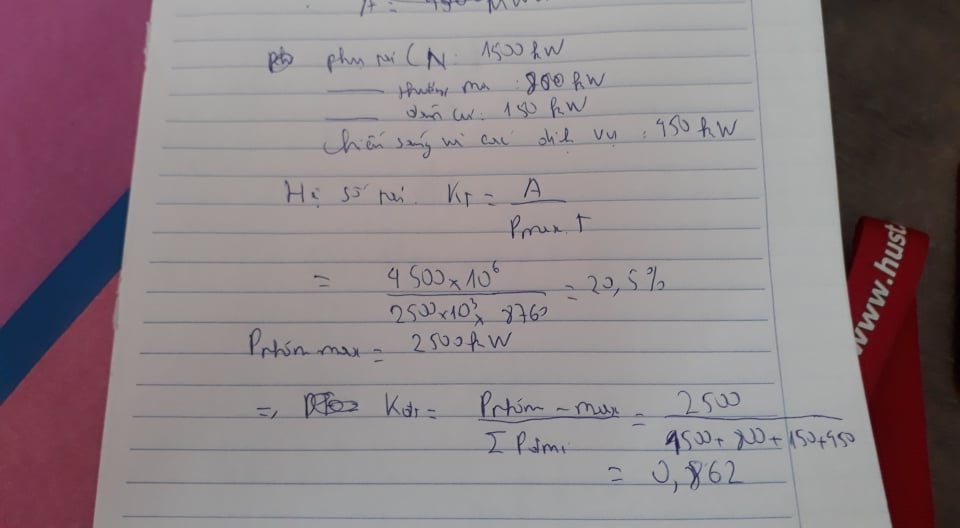 A = 4500 MWh
phụ tải CN: 1500 kW
thương mại: 800 kW
dân cư: 150 kW
chiếu sáng và các dịch vụ: 450 kW
Hệ số tải. KT = A / Pmax.T
= 4500×10⁶ / 2500×10³ × 8760 = 20,5%
Pnhóm max = 2500 kW
=> Kđt = Pnhóm-max / Σ Pđmi = 2500 / 1500+800+150+450
= 0,862
www.hust